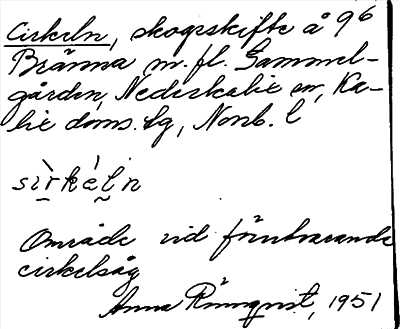 Cirkeln, skogsskifte å 96
Bränna m.fl. Gammel-
gården, Nederkalix sn, Ka-
lix doms.bg, Norrb. l
sìrkéln
Område vid förutvarande
cirkelsåg
Anna Rönnqvist, 1951